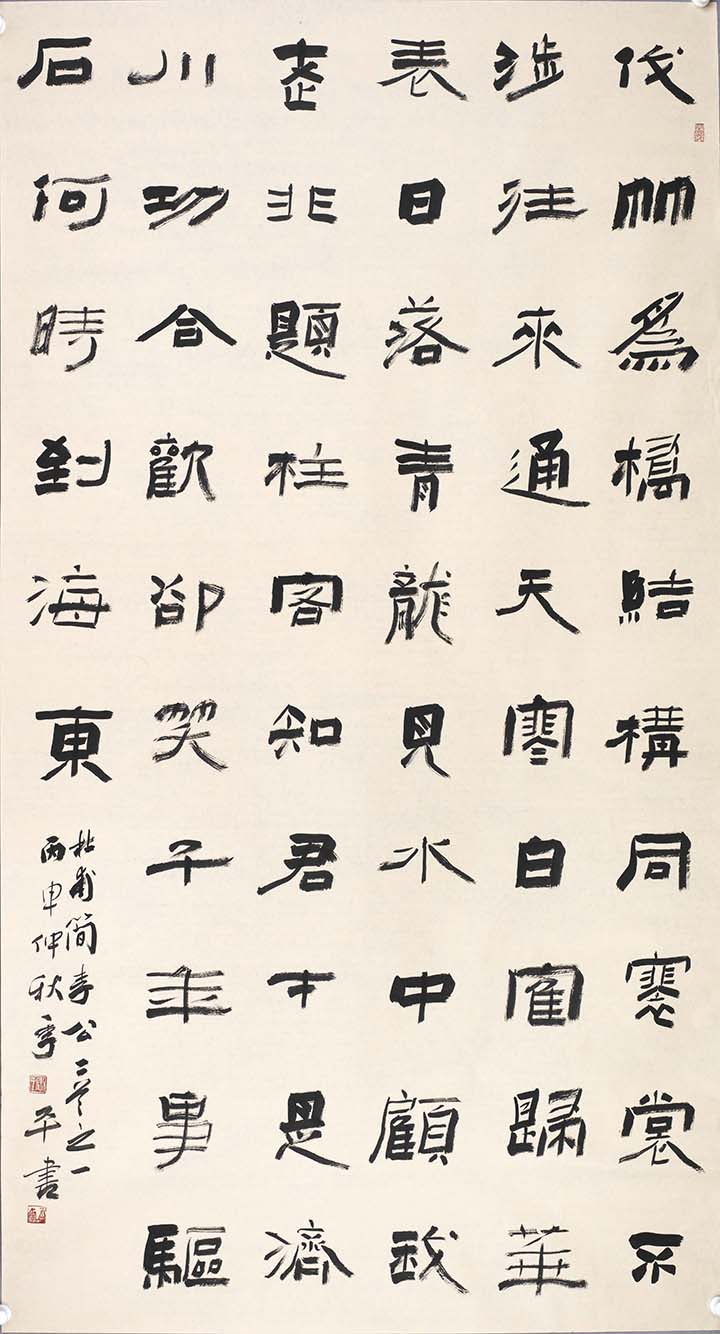 伐竹爲橋結構同褰裳不
涉往來通天寒白寉歸華
表日落青龍見水中顧我
老非題柱客知君才是濟
川功合歡卻笑千年事驅
石何時到海東
杜甫簡李公二首之一
丙申仲秋 平書